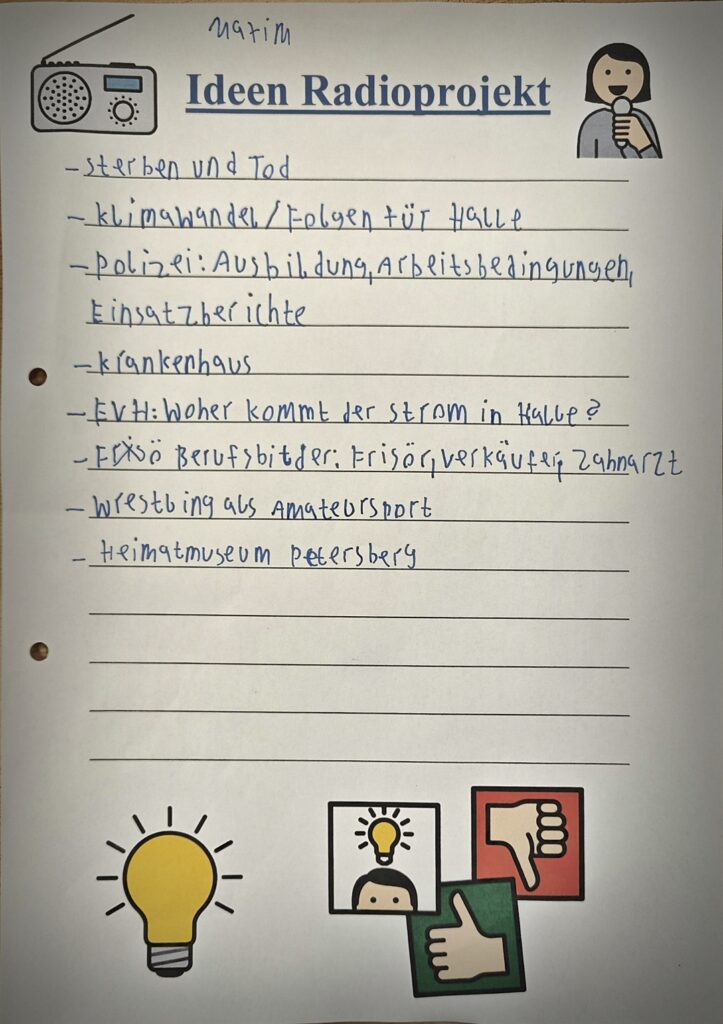 Maxim
Ideen Radioprojekt
- sterben und Tod
- klimawandel/Folgen für Halle
- polizei: Ausbildung, Arbeitsbedingungen,
Einsatzberichte
- krankenhaus
- EVH: Woher kommt der strom in Halle?
- Berufsbilder: Frisör, verkäufer, Zahnarzt
- Wrestling als Amateursport
- Heimatmuseum petersberg